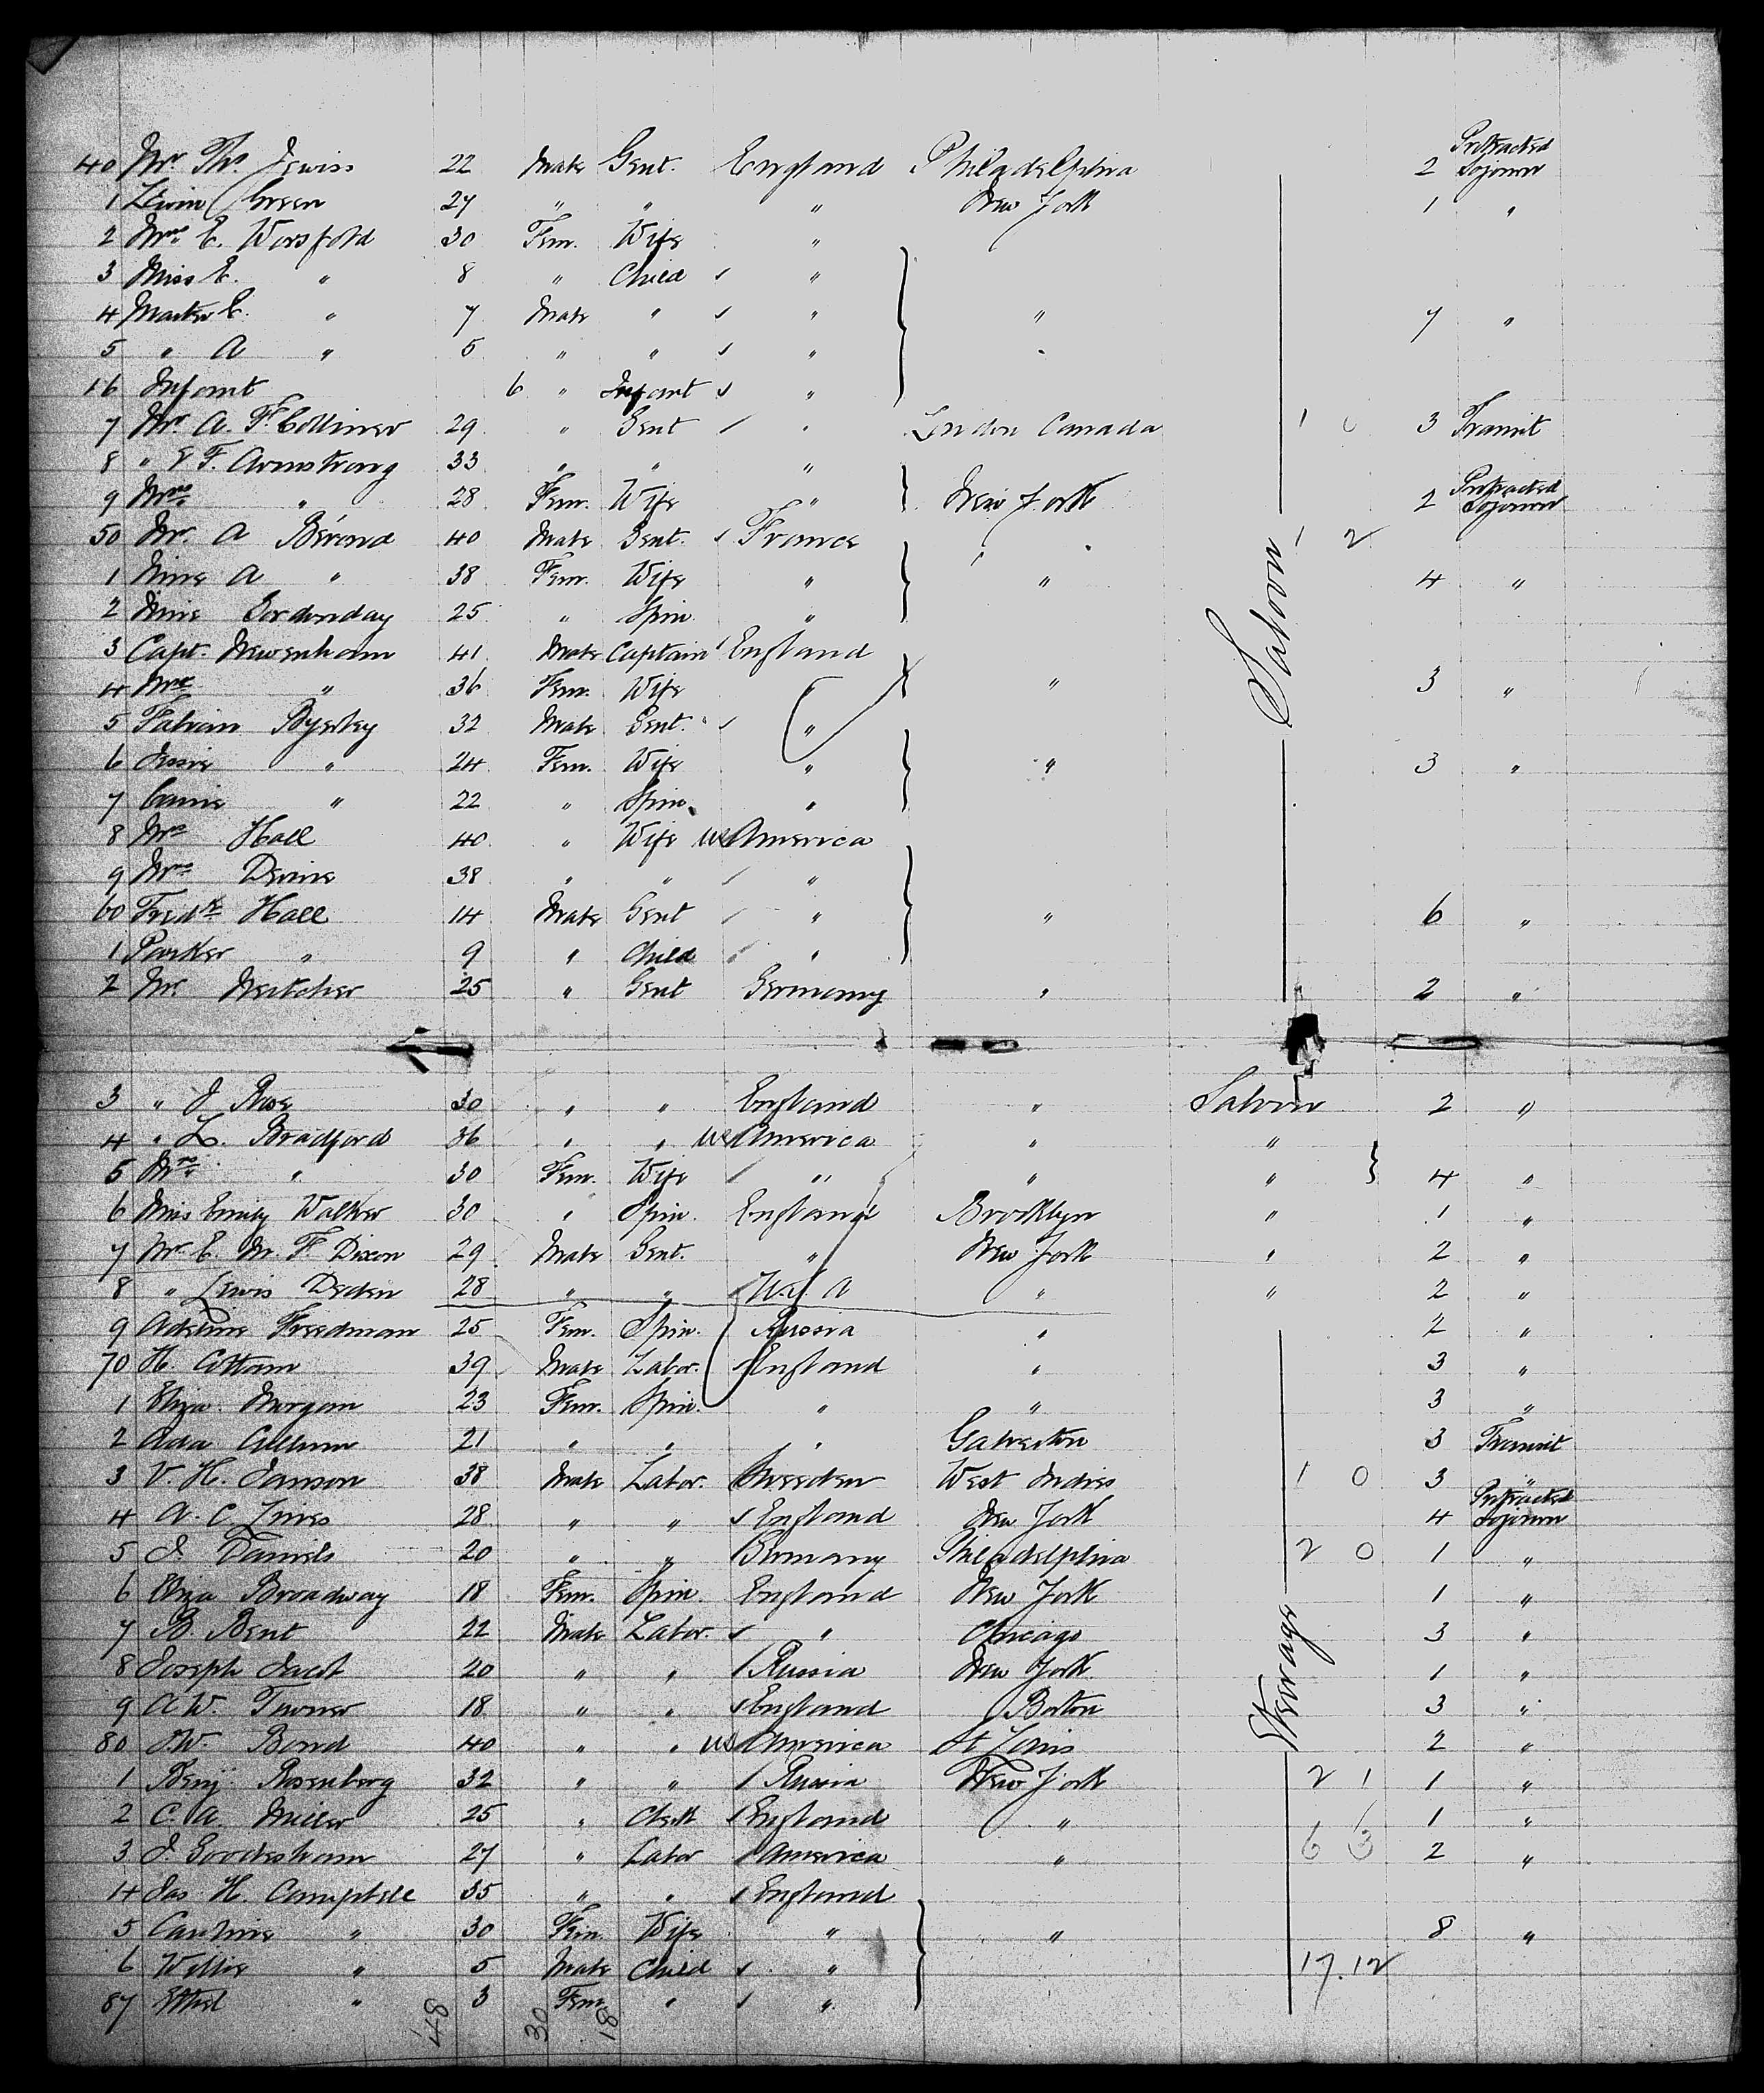 40 Mr. Thos. Jewiss 22 Male Gent. England Philadelphia 2 Protracted Sojourn
1 Green 27 " " " New York 1 "
2 Mrs. E. Worsfold 30 Fem. Wife "
3 Miss E. " 8 " Child "
4 Master E. " 7 Male " " " 7 "
5 " A " 5 " " "
46 Infant 6 " Infant "
7 Mr. A. F. Collines 29 " Gent " London Canada 1 0 3 Transit
8 " E F. Armstrong 33 " " "
9 Mrs. " 28 Fem. Wife " New York 2 Protracted Sojourn
50 Mr. A Bérend 40 Male Gent. France " 1 2
1 Mme A " 38 Fem. Wife " " 4 "
2 Mme 25 " Spin. "
3 Capt. Newenham 41 Male Captain England
4 Mrs " 36 Fem. Wife " 3 "
5 Fabian Byerley 32 Male Gent. "
6 Jessie " 24 Fem. Wife " " 3 "
7 " 22 " Spin. "
8 Mrs Hall 40 " Wife US America
9 Mrs 38 " " "
60 Fredk Hall 14 Male Gent " " 6 "
1 Parker " 9 " Child "
2 Mr. 25 " Gent Germany " 2 "
Saloon
3 " J. Rose 30 " " England " Saloon 2 "
4 " L. Bradford 36 " " US America " "
5 Mrs. " 30 Fem. Wife " " " 4 "
6 Miss Emily Walker 30 " Spin. England Brooklyn " 1 "
7 Mr. E. M. F. Dixon 29 Male Gent. " New York " 2 "
8 " Lewis 28 " " U.S. A " " 2 "
9 Adeline Freedman 25 Fem. Spin. Russia " 2 "
70 H. Cottam 39 Male Labor. England " 3 "
1 Eliza Morgan 23 Fem. Spin. " " 3 "
2 Ada 21 " " " Galveston 3 Transit
3 V. H. Janson 38 Male Labor. Sweden West Indies 1 0 3 "
4 A. C. Lines 28 " " England New York 4 Protracted Sojourn
5 J. Daniels 20 " " Germany Philadelphia 2 0 1 "
6 Eliza Broadway 18 Fem. Spin. England New York 1 "
7 B. Bent 22 Male Labor. " Chicago 3 "
8 Joseph Jacob 20 " " Russia New York 1 "
9 A W. Turner 18 " " England Boston 3 "
80 J.W. Bond 40 " " US America St Louis 2 "
1 Benj. Rosenberg 32 " " Russia New York 2 1 1 "
2 C. A. Miller 25 " Clerk England " 1 "
3 J. 27 " Labor America " 6 3 2 "
4 Jas. H. Campbell 35 " " England
5 Caroline " 30 Fem. Wife " " 8 "
6 Willie " 5 Male Child " 17.12
87 Ethel " 3 Fem. " "
Steerage
48 30 18